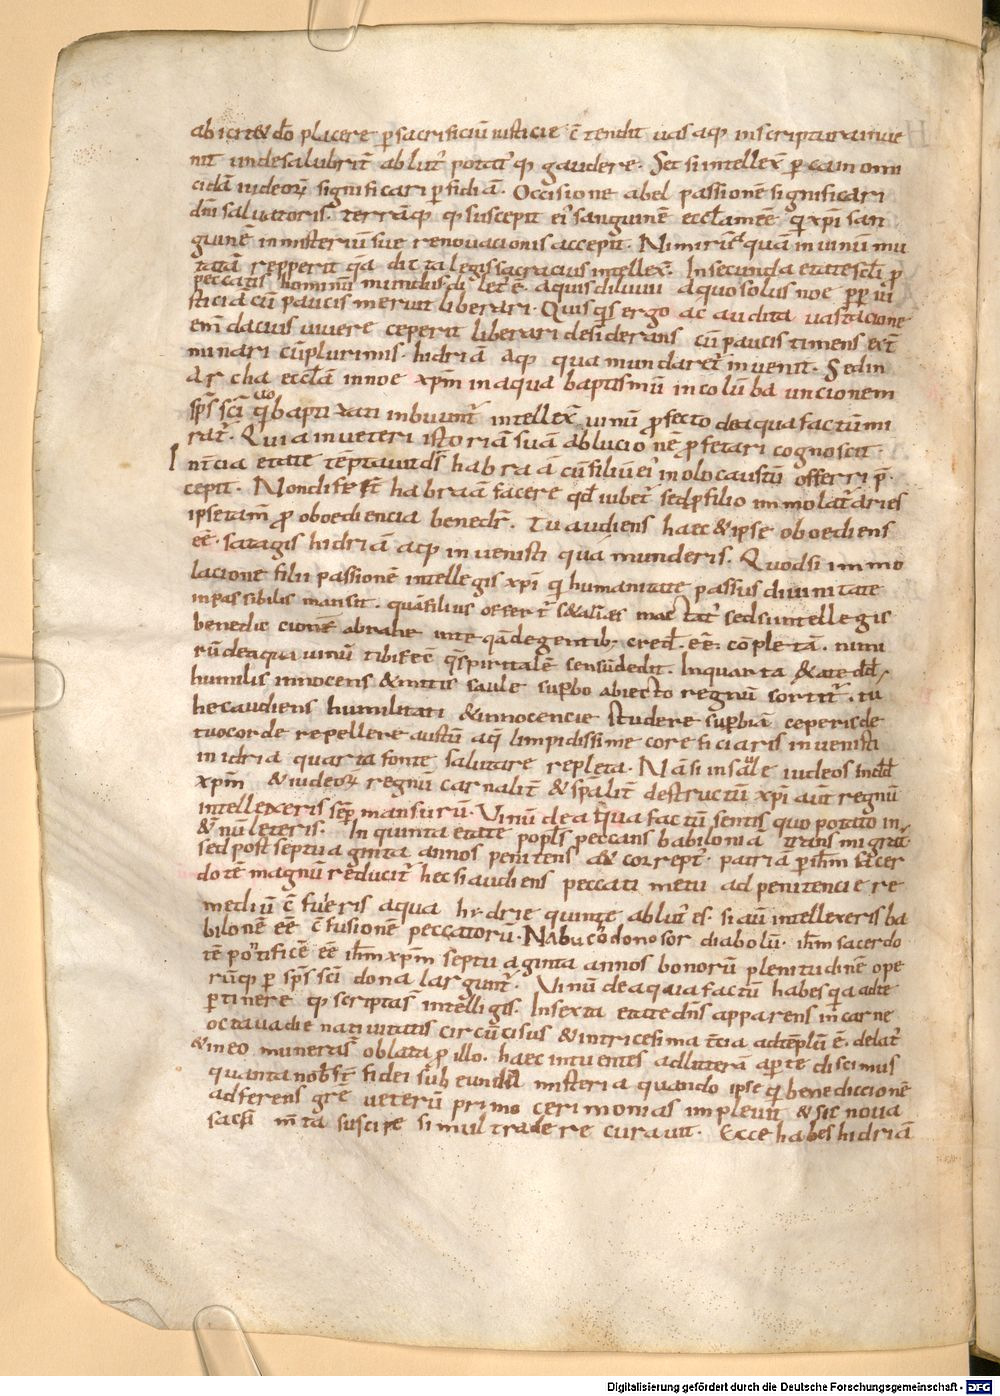 abicit & dō placere p sacrificiū iusticie c̄tendit uas aq̨ in scripturaruūe
nit unde salubrit̄ ablui potatur q̨ gaudere. Set si intellex̄ p cain omi
cidā iudeorū significari p fidiā. Occisione abel passionē significari
dn̄i saluatoris. terrāq̨ q̨ suscepit ei᾽ sanguinē eccl̄am eē̄ q̄ xp̄i san
guinē in misteriū sue renouacionis accepit. Nimirū quā in uinū mu
tatā repperit q̄a dicta legis sacracius intellex̄. In secunda etate sc̄li p
peccatis hominū mundus dilet᾽ ē. aquis diluuii a quo solus noe pp iu
sticia cū paucis meruit liberari. Quis q̄s ergo ac audita uastacione
em̄dacius uiuere ceperit liberari desiderans cū paucis timens ext̄
minari cū plurimis. hidriā aq̨ qua mundaret᾽ inuenit. Sed in
archa eccl̄am in noe xp̄m in aqua baptismū in colūba uncionem
sp̄s sc̄i q̄ baptizati inbuunt᾽ intellex̄ uinū profecto de aqua factū mi
rat᾽. Quia in ueteri istoriā suā ablucione profetari cognoscit.
In t̄cia etate tēptauit ds̄ habraā cū filiū ei᾽ in olocaustū offerri p̄
cepit. Non difert habraā facere qd̄ iubet᾽ sed p filio immolat᾽ aries
ipse tam̄ p oboediencia benedr̄. Tu audiens haec & ipse oboediens
eē̄. satagis hidriā acq̨ inuenisti quā munderis. Quodsi immo
lacione filii passionē intellegis xp̄i q̄ humanitate passus diuinitate
inpassibilis mansit. quā filius offert᾽ mactat᾽ sed si intellegis
benediccionē̄ abrahe de gentib; cred. eē̄. cōpletā. nimi
rū de aqua uinū tibi fec̄ q̄ spiritalē sensū dedit. In quarta &ate dd̄
humilis innocens & mitis saule supbo abiecto regnū sortit᾽. tu
hec audiens humilitati & innocencie studere supbiā ceperis de
tuo corde repellere austū aq̨ limpidissime core ficiaris inuenisti
in idria quarta fonte salutare repleta. Nā si in saule iudeos
xp̄m & iudeoꝝ regnū carnalit̄ & sp̄alit̄ destructū xp̄i aut̄ regnū
intellexeris semp mansurū. Uinū de aqua factū sentis quo potato in
& nūleteris. In quinta etate popl̄s peccans babiloniā transmigrat᾽
sed post septuaginta annos penitens ac correpť. patria p ih̄m sacer
dotē magnū reducit᾽ hec si audiens peccati metu ad penitencie re
mediū c̄fueris aqua hidrie quinte ablut᾽ es. si aut̄ intellexeris ba
bilonē eē̄ c̄fusionē peccatorū. Nabucodonosor diabolū. ih̄m sacerdo
tē pontificē eē̄ ih̄m xp̄m septuaginta annos bonorū plenitudinē ope
rūq̨ p sp̄s sc̄i dona largunt᾽. Uinū de aqua factū habes q̄a ad te
ptinere q̨ scriptas intelligis. In sexta etate dn̄s apparens in carne
octaua die natiuitatis circūcisus & in tricesima t̄cia ad tēplū ē. delat᾽
& in eo munerās oblata p illo. haec intuentes ad litterā apte discimus
quanta nobis s̄t fidei sub eunda misteria quando ipse q̄ benediccionē
adferens gr̄e ueterū primo cerimonias impleuit & sic noua
sac̄ m̄ta suscipe simul tradere curauit. Ecce habes hidriā
Digitalisierung gefördert durch die Deutsche Forschungsgemeinschaft - DFG